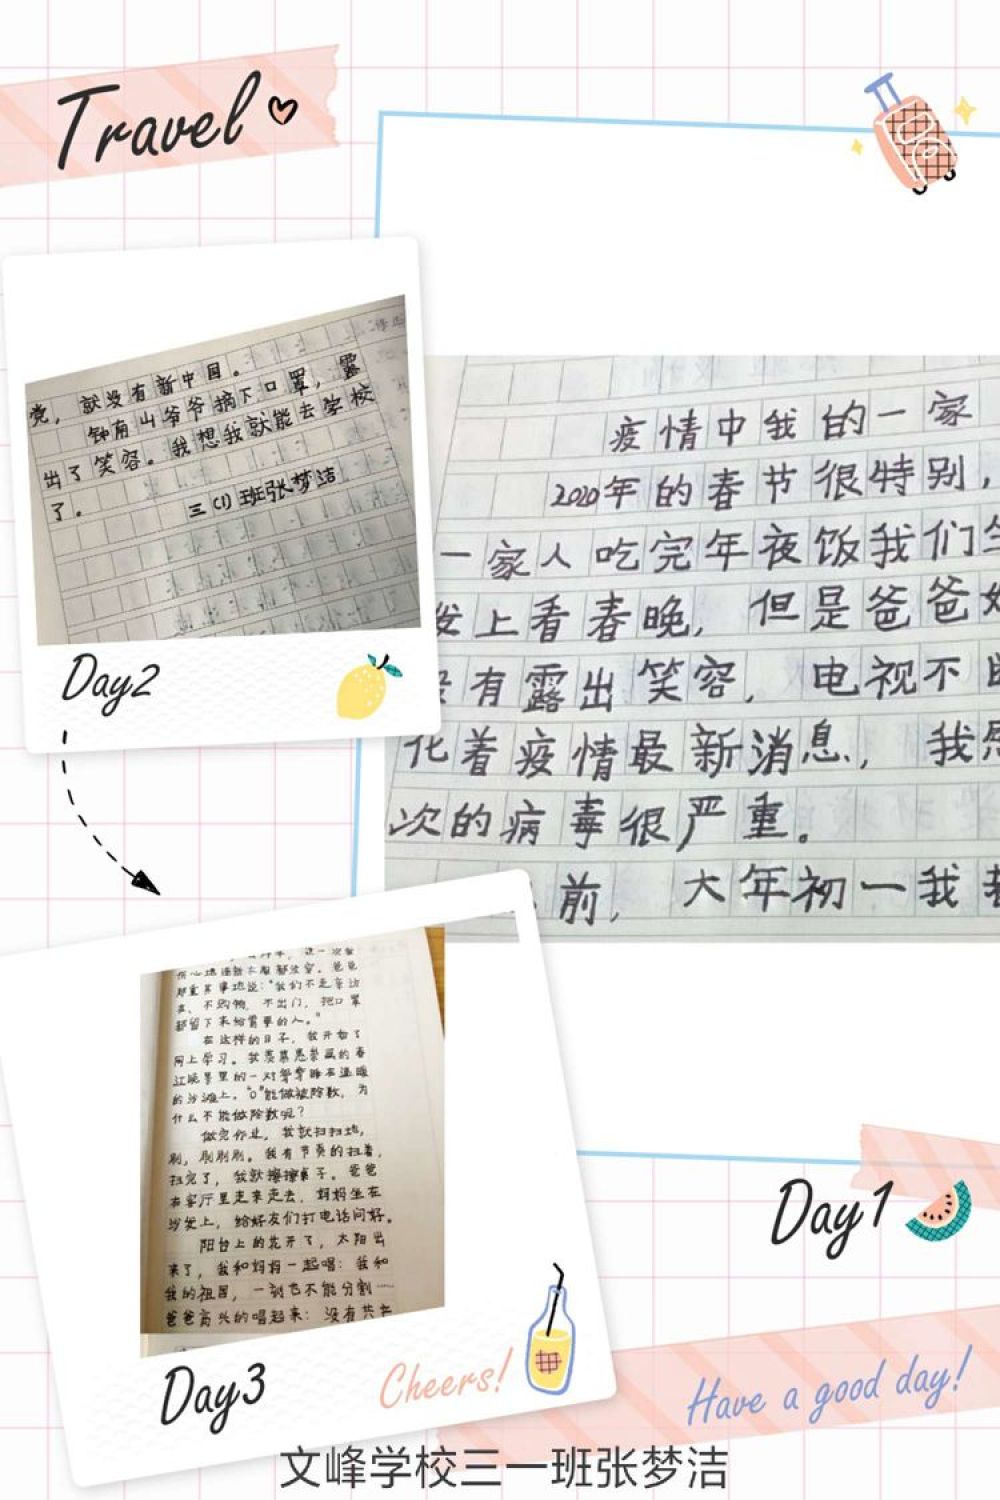 Travel
党，就没有新中国。
钟南山爷爷摘下口罩，露
出了笑容。我想我就能去学校
了。
三(1)班张梦洁
Day2
疫情中我的一家
2020年的春节很特别，
一家人吃完年夜饭我们
发上看春晚，但是爸爸
有露出笑容，电视不
化着疫情最新消息，我
次的病毒很严重。
前，大年初一我
Day1
都重其事地说："我们不走亲访
友、不购物，不出门，把口罩
都留下来给需要的人。"
在这样的日子，我开始了
网上学习。我羡慕惠崇画的春
江晚景里的一对鸳鸯睡在温暖
的沙滩上。"0"能做被除数，为
什么不能做除数呢？
做完作业，我就扫扫地，
刷，刷刷刷。我有节奏的扫着，
扫完了，我就擦擦桌子。爸爸
在客厅里走来走去，妈妈坐在
沙发上，给好友们打电话问好。
阳台上的花开了，太阳出
来了，我和妈妈一起唱：我和
我的祖国，一刻也不能分割……
爸爸高兴的唱起来：没有共产
Day3
Cheers!
Have a good day!
文峰学校三一班张梦洁